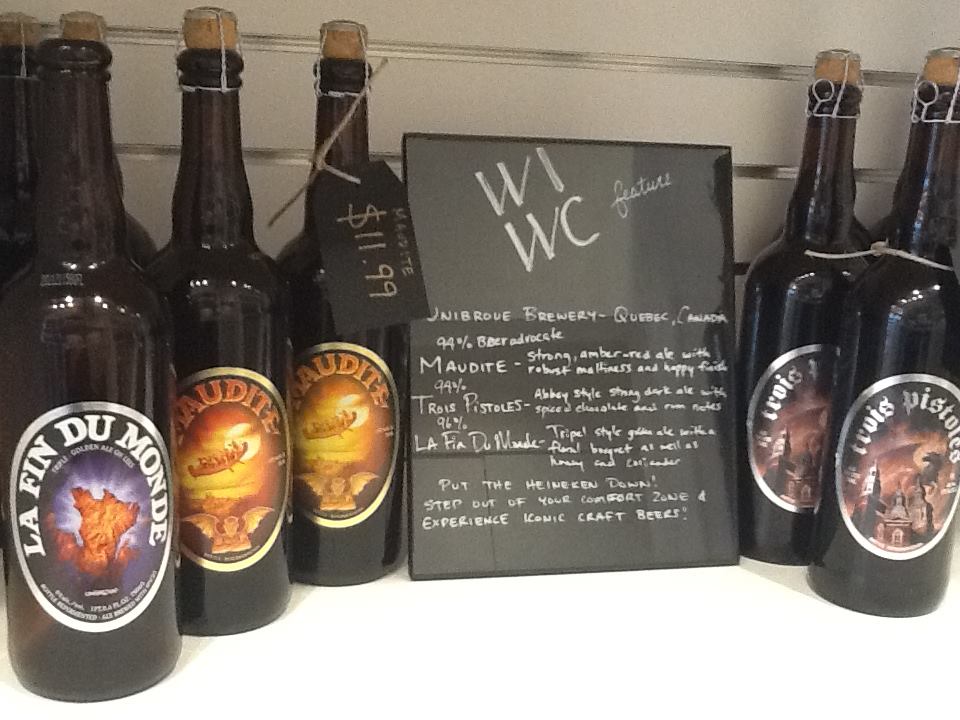 WI
WC
feature
UNIBROUE BREWERY- QUEBEC, CANADA
94% Beer advocate
MAUDITE - strong, amber-red ale with
robust maltiness and happy finish
94%
TROIS PISTOLES- Abbey style strong dark ale with
spiced chocolate and rum notes
96%
LA Fin Du Monde- Tripel style golden ale with a
floral bouquet as well as
honey and coriander
PUT THE HEINEKEN DOWN!
STEP OUT OF YOUR COMFORT ZONE &
EXPERIENCE ICONIC CRAFT BEERS!
MAUDITE
$11.99
LA FIN DU MONDE
TRIPLE - GOLDEN ALE ON LEES
MAUDITE
MAUDITE
trois
trois pistoles